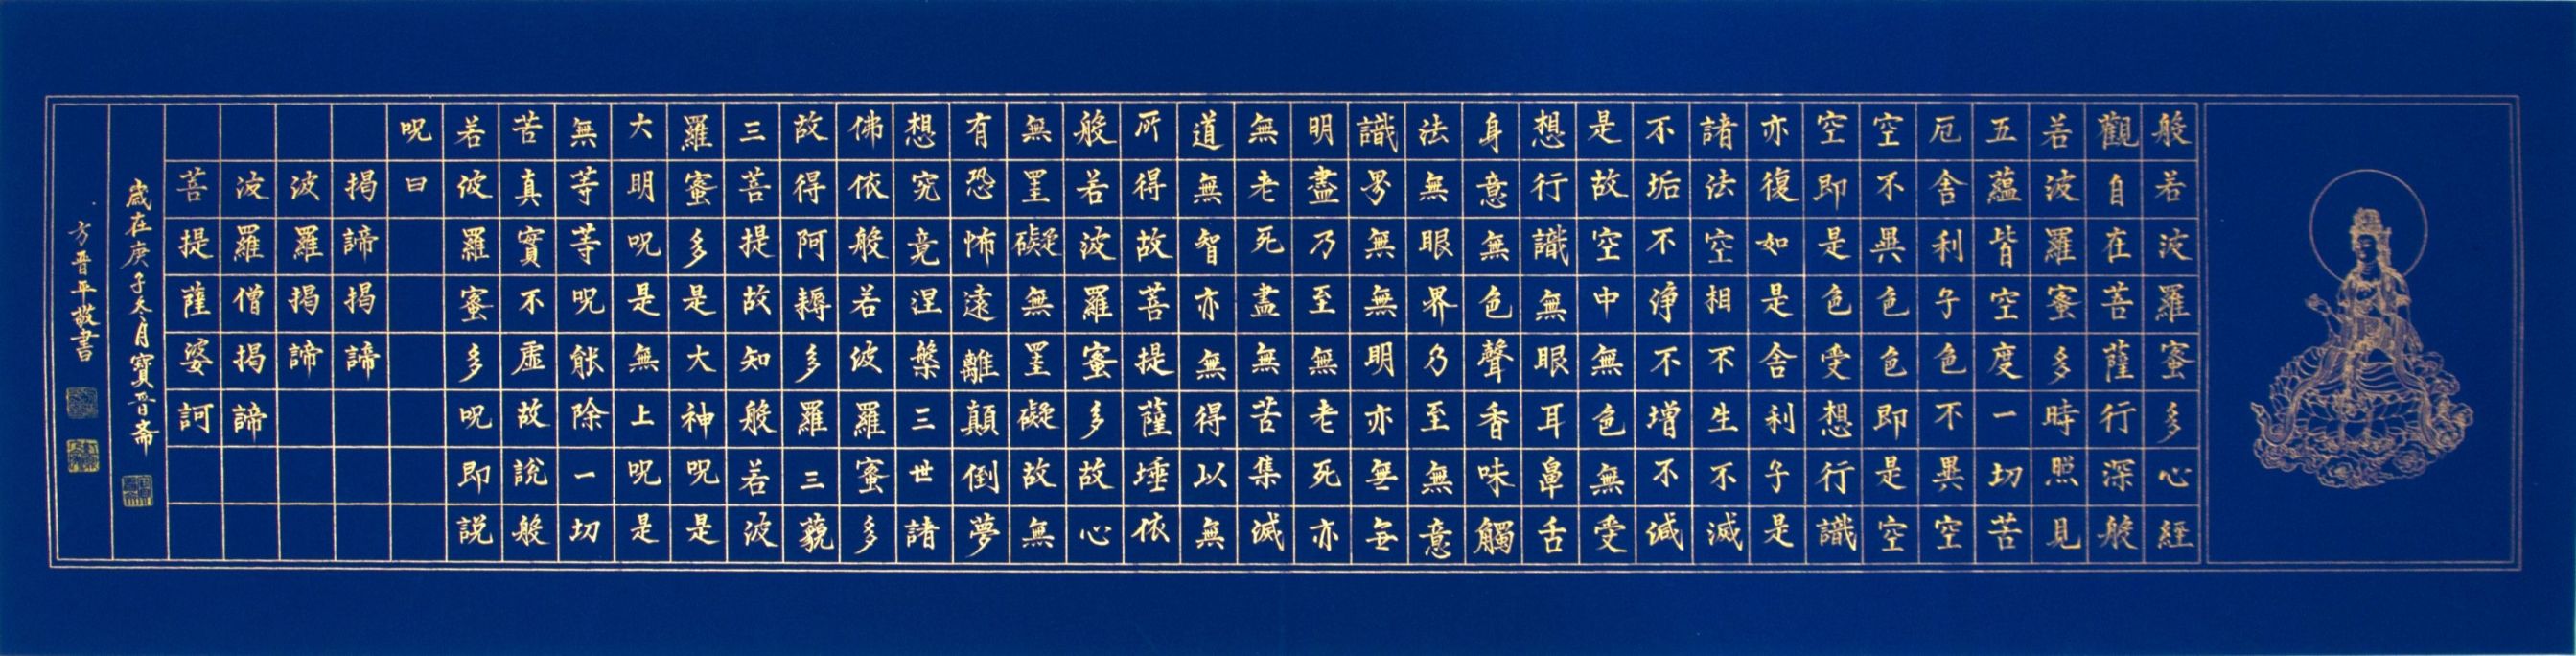 般若波羅蜜多心經
觀自在菩薩行深般
若波羅蜜多時照見
五蘊皆空度一切苦
厄舍利子色不異空
空不異色色即是空
空即是色受想行識
亦復如是舍利子是
諸法空相不生不滅
不垢不淨不增不減
是故空中無色無受
想行識無眼耳鼻舌
身意無色聲香味觸
法無眼界乃至無意
識界無無明亦無無
明盡乃至無老死亦
無老死盡無苦集滅
道無智亦無得以無
所得故菩提薩埵依
般若波羅蜜多故心
無罣礙無罣礙故無
有恐怖遠離顛倒夢
想究竟涅槃三世諸
佛依般若波羅蜜多
故得阿耨多羅三藐
三菩提故知般若波
羅蜜多是大神呪是
大明呪是無上呪是
無等等呪能除一切
苦真實不虛故說般
若波羅蜜多呪即説
呪曰
揭諦揭諦
波羅揭諦
波羅僧揭諦
菩提薩婆訶
歲在庚子冬月寶晋齋
方晋平敬書